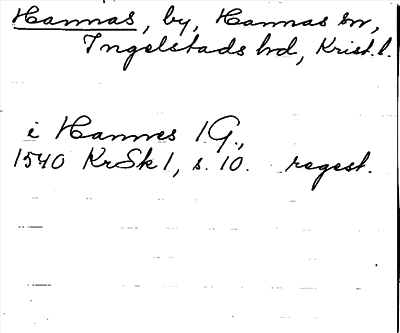 Hannas, by, Hannas sn,
Ingelstads hd, Krist. l.
i Hannes 1 G.,
1540 KrSk 1, s. 10. regest.